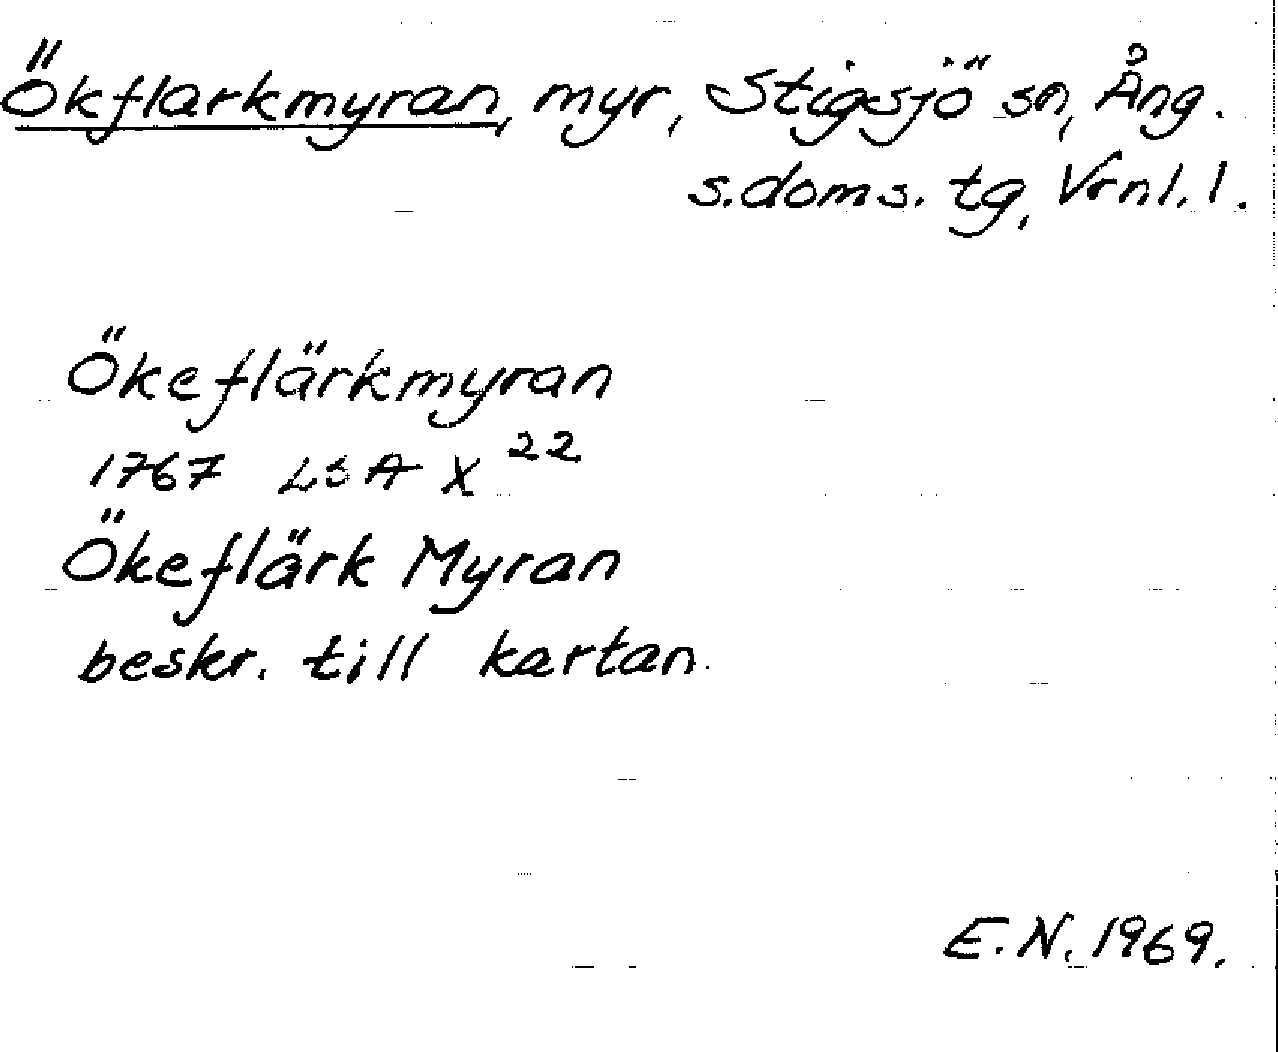 Ökflarkmyran, myr, Stigsjö sn, Ång.
s.doms. tg, Vrnl. l.
Ökeflärkmyran
1767 LSA X 22
Ökeflärk Myran
beskr. till kartan.
E.N. 1969.